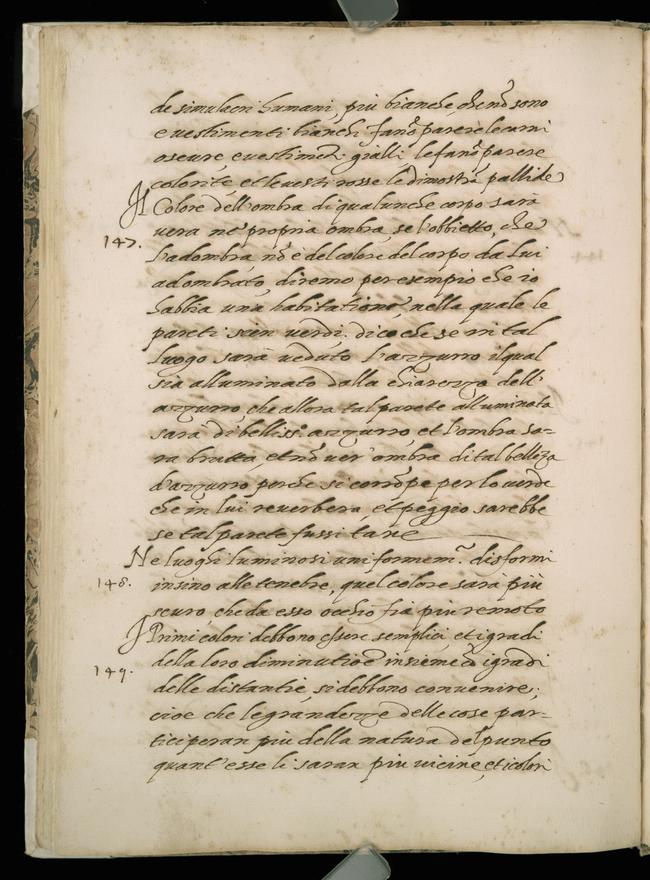 de simulacri humani, più bianche, che nõ sono
e vestimenti bianchi fanõ parere le carni
oscure, e vestimẽti gialli le fanõ parere
colorite et le vesti rosse le dimostrã pallide
Il Colore dell'ombra di qualunche corpo sarà
147. vera né propria ombra, se l'obbietto, che
l'adombra, nõ è del colore del corpo da lui
adombrato, diremo per esempio che io
habbia una habitatione, nella quale le
pareti sien verdi. dico che se in tal
luogo sarà veduto l'azzurro il qual
sia alluminato dalla chiarezza dell'
azzurro, che allora tal parete alluminata
sarà di belliss.º azzurro, et l'ombra sa-
rà brutta, et nõ ver'ombra di tal bellezza
d'azzurro perche si corrõpe per lo verde
che in lui reverbera, et peggio sarebbe
se tal parete fussi tane
Ne luoghi luminosi uniformem.te disformi
148. insino alle tenebre, quel colore sara più
scuro, che da esso occhio fia piu remoto
I Primi colori debbono essere semplici, et i gradi
149. della loro diminutioẽ insieme cõ i gradi
delle distantie, si debbono convenire;
cioe che le grandezze delle cose par-
ticiperan più della natura del punto
quant'esse li saran piu vicine, et i colori